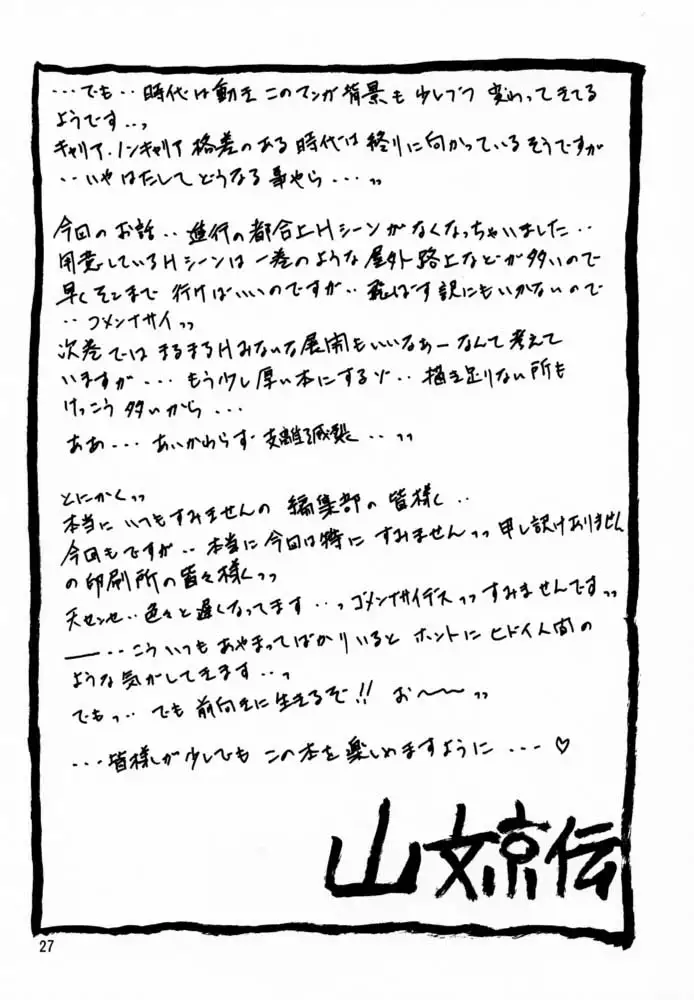 ・・・でも・・時代は動き このマンガ背景も少しづつ 変わってきてる
ようです・・っ
キャリア・ノンキャリア 格差のある時代は終りに向かっているそうですが
・・いやはたして どうなる事やら・・・ッッ
今回のお話・・進行の都合上Hシーンがなくなっちゃいました・・
用意しているHシーンは一巻のような屋外路上などが多いので
早くそこまで行けばいいのですが・・飛ばす訳にもいかないので
・・ゴメンナサイッッ
次巻では まるまるHみたいな展開もいいなぁーなんて考えて
いますが・・・もう少し厚い本にするゾ・・描き足りない所も
けっこう多いから・・・
ああ・・・あいかわらず支離滅裂・・ッッ
とにかくッッ
本当にいつもすみませんの 編集部の皆様く・・
今回もですが・・本当に今回は特に すみませんッッ申し訳けありません
の印刷所の皆々様くッッ
天センセ・・色々と遅くなってます・・っゴメンナサイデスッッすみませんですッッ
――・・こういつもあやまってばかりいると ホントにヒドイ人間の
ような気がしてきます・・っ
でもっ・・でも前向きに生きるぞ!! お〜〜ッッ
・・・皆様しが少しでも この本を楽しめますように・・・♡
山文京伝
27